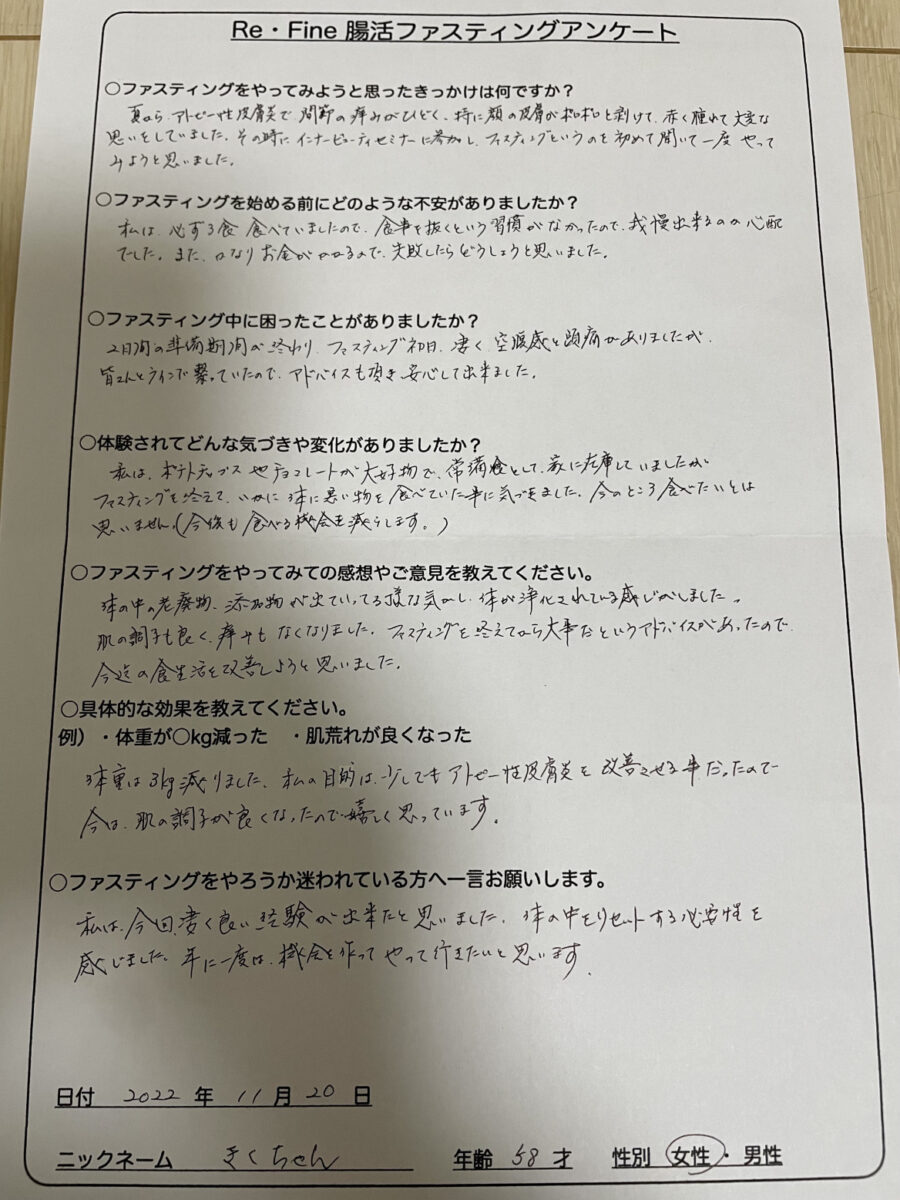 Re・Fine 腸活ファスティングアンケート
○ファスティングをやってみようと思ったきっかけは何ですか？
夏から、アトピー性皮膚炎で関節の痛みがひどく、特に顔の皮膚がポロポロと剥けて、赤く腫れて大変な
思いをしていました。その時にインナービューティセミナーに参加し、ファスティングというのを初めて聞いて一度やって
みようと思いました。
○ファスティングを始める前にどのような不安がありましたか？
私は、必ず3食食べていましたので、食事を抜くという習慣がなかったので、我慢出来るのか心配
でした。また、かなりお金がかかるので、失敗したらどうしようと思いました。
○ファスティング中に困ったことがありましたか？
2日間の準備期間が終わり、ファスティング初日、凄く、空腹感と頭痛がありましたが、
皆さんとラインで繋っていたので、アドバイスも頂き、安心して出来ました。
○体験されてどんな気づきや変化がありましたか？
私は、ポテトチップスやチョコレートが大好物で、常備食として、家に在庫していましたが
ファスティングを終えて、いかに体に悪い物を食べていた事に気づきました。今のところ食べたいとは
思いません。(今後も食べる機会を減らします。)
○ファスティングをやってみての感想やご意見を教えてください。
体の中の老廃物、添加物が出ていってる様な気がし、体が浄化されている感じがしました。
肌の調子も良く、痒みもなくなりました。ファスティングを終えてから大事だというアドバイスがあったので、
今迄の食生活を改善しようと思いました。
○具体的な効果を教えてください。
例）・体重が○kg減った　・肌荒れが良くなった
体重は3kg減りました。私の目的は、少しでもアトピー性皮膚炎を改善させる事だったので
今は、肌の調子が良くなったので嬉しく思っています。
○ファスティングをやろうか迷われている方へ一言お願いします。
私は、今回、凄く良い経験が出来たと思いました。体の中をリセットする必要性を
感じました。年に一度は、機会を作ってやって行きたいと思います。
日付 2022 年 11 月 20 日
ニックネーム きくちゃん 年齢 58 才 性別 女性・男性